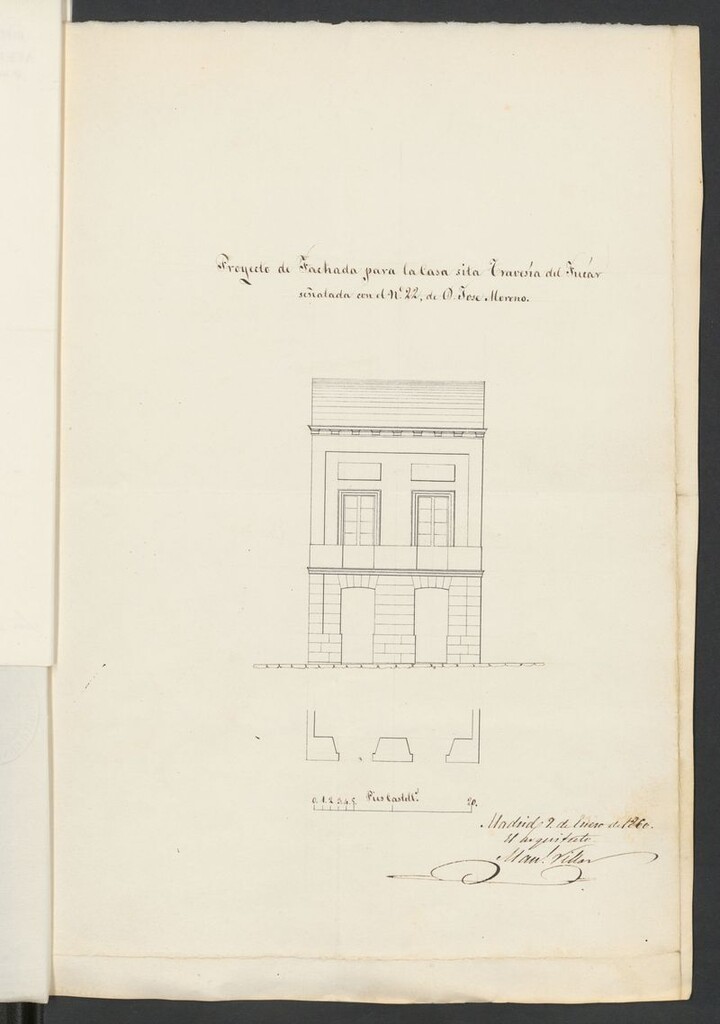 Proyecto de Fachada para la Casa sita Travesía del Fucár
señalada con el Nº 22, de D. Jose Moreno.
0. 1. 2. 3. 4. 5. Pies Castells. 20.
Madrid 9 de Enero de 1860.
El arquitecto
Manl. Villar